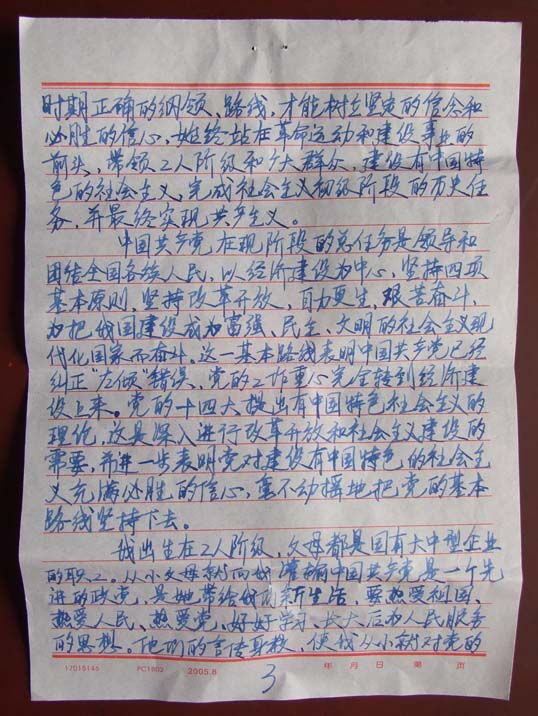 时期正确的纲领、路线,才能树立坚定的信念和
必胜的信心,始终站在革命运动和建设事业的
前头,带领工人阶级和广大群众,建设有中国特
色的社会主义,完成社会主义初级阶段的历史任
务,并最终实现共产主义。
中国共产党在现阶段的总任务是领导和
团结全国各族人民,以经济建设为中心,坚持四项
基本原则,坚持改革开放,自力更生,艰苦奋斗,
为把我国建设成为富强、民主、文明的社会主义现
代化国家而奋斗。这一基本路线表明中国共产党已经
纠正“左倾”错误,党的工作重心完全转到经济建
设上来。党的十四大提出有中国特色社会主义的
理论,这是深入进行改革开放和社会主义建设的
需要,并进一步表明党对建设有中国特色的社会主
义充满必胜的信心,毫不动摇地把党的基本
路线坚持下去。
我出生在工人阶级,父母都是国有大中型企业
的职工。从小父母就向我灌输中国共产党是一个先
进的政党,是她带给我们新生活,要热爱祖国、
热爱人民、热爱党,好好学习,长大后为人民服务
的思想。他们的言传身教,使我从小就对党的
17015145 PC1802 2005.8 年 月 日 第 页
3